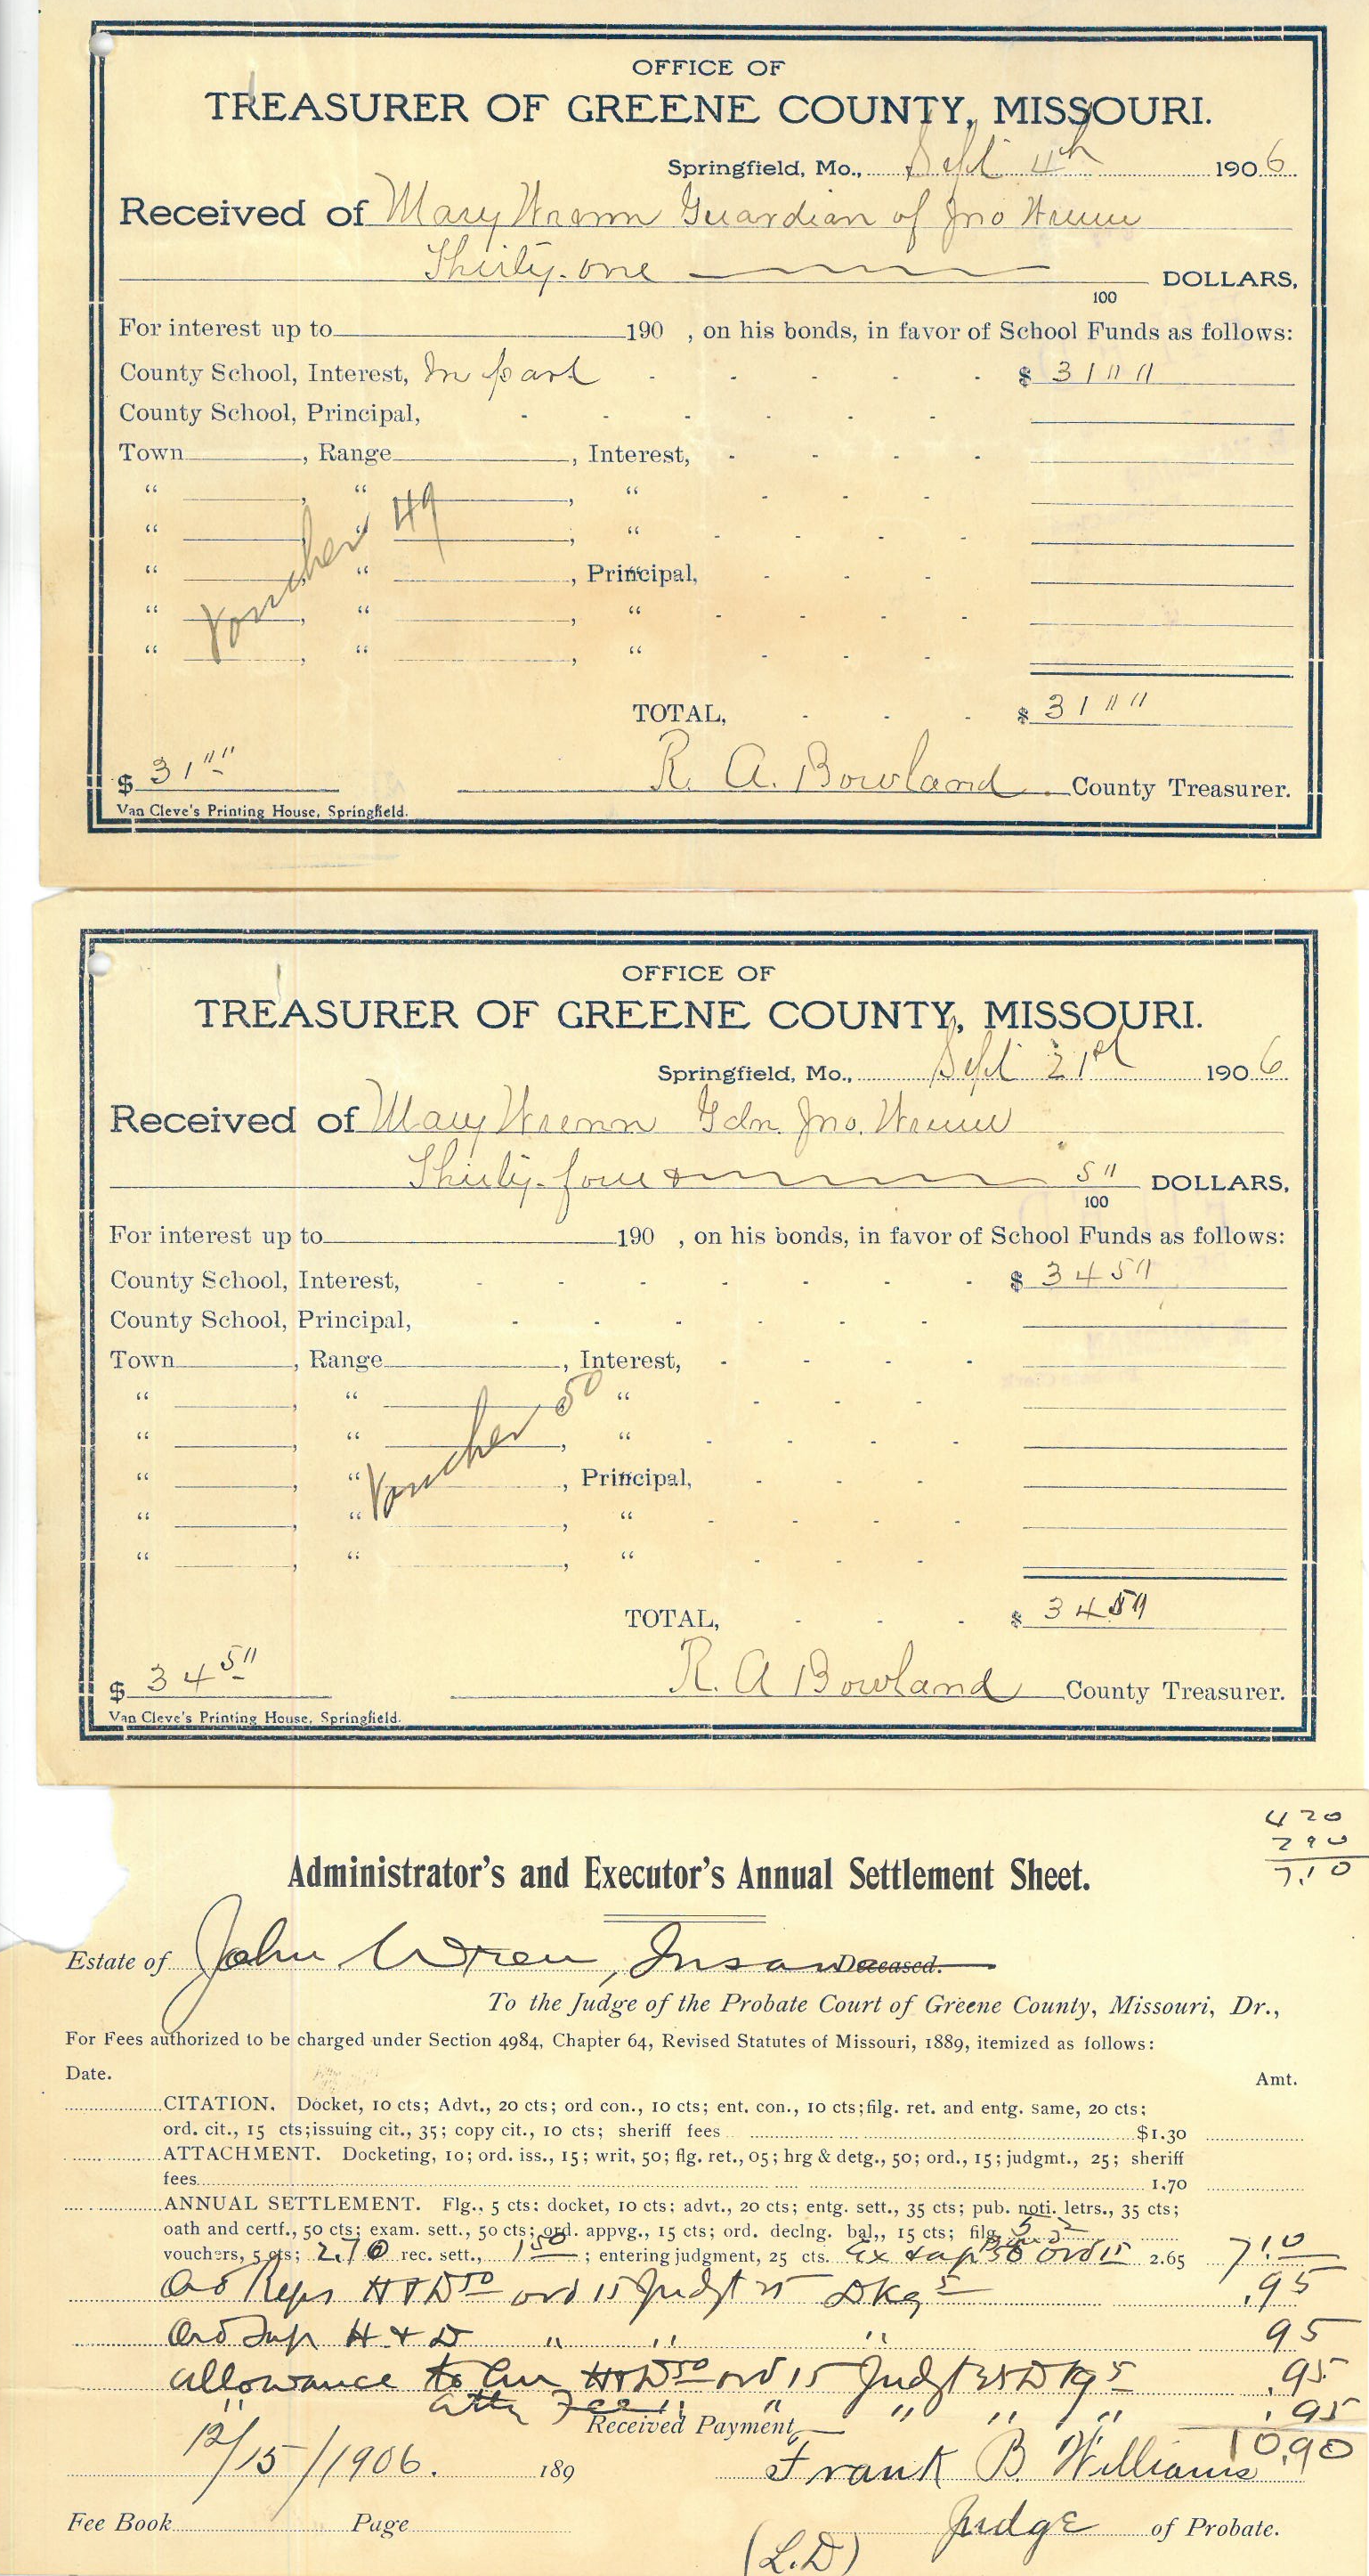 OFFICE OF
TREASURER OF GREENE COUNTY, MISSOURI.
Springfield, Mo., Sept 4th 1906
Received of Mary Wrenn Guardian of Jno Wrenn
Thirty-one DOLLARS,
100
For interest up to 190 , on his bonds, in favor of School Funds as follows:
County School, Interest, In part - - - - - $ 31 " "
County School, Principal, - - - - - -
Town , Range , Interest, - - - -
" , " , " - - -
" , " , " - - - -
" , " , Principal, - - -
" , " , " - - - -
" , " , " - - -
Voucher 49
TOTAL, - - - $ 31 " "
$ 31 " " R. A. Bowland County Treasurer.
Van Cleve's Printing House, Springfield.
OFFICE OF
TREASURER OF GREENE COUNTY, MISSOURI.
Springfield, Mo., Sept 21st 1906
Received of Mary Wrenn Gdn. Jno. Wrenn
Thirty-four & 5" DOLLARS,
100
For interest up to 190 , on his bonds, in favor of School Funds as follows:
County School, Interest, - - - - - - - $ 34 5"
County School, Principal, - - - - - -
Town , Range , Interest, - - - -
" , " , " - - -
" , " , " - - - -
" , " , Principal, - - -
" , " , " - - - -
" , " , " - - -
Voucher 50
TOTAL, - - - $ 34 5"
$ 34 5" R. A Bowland County Treasurer.
Van Cleve's Printing House, Springfield.
4 20
2 90
7.10
Administrator's and Executor's Annual Settlement Sheet.
Estate of John Wren, Insane Deceased.
To the Judge of the Probate Court of Greene County, Missouri, Dr.,
For Fees authorized to be charged under Section 4984, Chapter 64, Revised Statutes of Missouri, 1889, itemized as follows:
Date. Amt.
CITATION. Docket, 10 cts; Advt., 20 cts; ord con., 10 cts; ent. con., 10 cts; filg. ret. and entg. same, 20 cts;
ord. cit., 15 cts; issuing cit., 35; copy cit., 10 cts; sheriff fees $1.30
ATTACHMENT. Docketing, 10; ord. iss., 15; writ, 50; flg. ret., 05; hrg & detg., 50; ord., 15; judgmt., 25; sheriff
fees 1.70
ANNUAL SETTLEMENT. Flg., 5 cts; docket, 10 cts; advt., 20 cts; entg. sett., 35 cts; pub. noti. letrs., 35 cts;
oath and certf., 50 cts; exam. sett., 50 cts; ord. appvg., 15 cts; ord. declng. bal,, 15 cts; filg. 52
vouchers, 5 cts; 2.70 rec. sett., 150 ; entering judgment, 25 cts. Ex & ap 50 ord 15 2.65 7.10
Ord Reps H & D 50 ord 15 Judgt 25 Dkg 5 .95
Ord Sup H & D " " " 95
allowance to H & D 50 ord 15 Judgt 25 Dkg 5 .95
" Atty Fee " " " " " .95
Received Payment, 10.90
12/15/1906. 189 Frank B. Williams
Fee Book Page Judge of Probate.
(L.D)